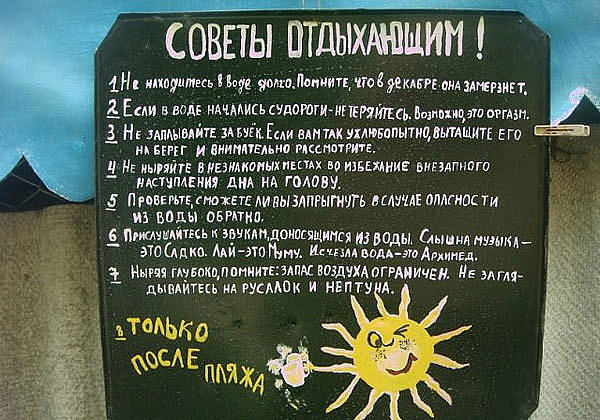 СОВЕТЫ ОТДЫХАЮЩИМ!
1 Не находитесь в воде долго. Помните, что в декабре она замерзнет.
2 Если в воде начались судороги - не теряйтесь. Возможно, это оргазм.
3 Не заплывайте за буёк. Если вам так уж любопытно, вытащите его
на берег и внимательно рассмотрите.
4 Не ныряйте в незнакомых местах во избежание внезапного
наступления дна на голову.
5 Проверьте, сможете ли вы запрыгнуть в случае опасности
из воды обратно.
6 Прислушайтесь к звукам, доносящимся из воды. Слышна музыка -
это Садко. Лай - это Муму. Исчезла вода - это Архимед.
7 Ныряя глубоко, помните: запас воздуха ограничен. Не загля-
дывайтесь на русалок и Нептуна.
в ТОЛЬКО
ПОСЛЕ ПЛЯЖА